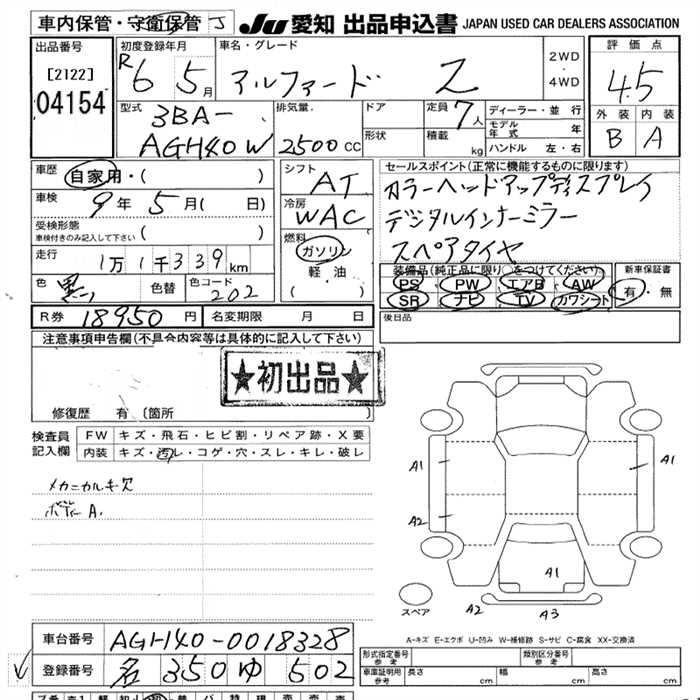 車内保管・守衛保管 J
JU 愛知 出品申込書 JAPAN USED CAR DEALERS ASSOCIATION
出品番号
[2122]
04154
初度登録年月
R6 5月
車名・グレード
アルファード Z
2WD
・
4WD
評価点
4.5
外装 内装
B A
型式
3BA-
AGH40W
排気量
2500cc
ドア
形状
定員 7人
積載 kg
ディーラー・並行
モデル年式 年
ハンドル 左・右
車歴
自家用・( )
車検
9年5月( 日)
受検形態
車検付きのみ記入して下さい ( )
走行
1万1千339km
色 黒 色替 色コード 202
シフト
AT
冷房
WAC
燃料
ガソリン
軽・油
( )
セールスポイント(正常に機能するものに限ります)
カラーヘッドアップディスプレイ
デジタルインナーミラー
スペアタイヤ
装備品(純正品に限り○をつけてください)
PS PW エアB AW
SR ナビ TV カワシート
新車保証書
有・無
R券 18950円 名変期限 月 日
後日品
注意事項申告欄(不具合内容等は具体的に記入して下さい)
★初出品★
修復歴 有 〔箇所 〕
検査員記入欄
FW キズ・飛石・ヒビ割・リペア跡・X要
内装 キズ・汚レ・コゲ・穴・スレ・キレ・破レ
メカニカルキ欠
ボデーA.
A1
A1
A2
A1
スペア
A2
A3
A1
A-キズ E-エクボ U-凹み W-補修跡 S-サビ C-腐食 XX-交換済
車台番号 AGH40-0018328
登録番号 名 350 ゆ 502
形式指定番号 参考
類別区分番号 参考
車庫証明用 参考
長さ cm
幅 cm
高さ cm